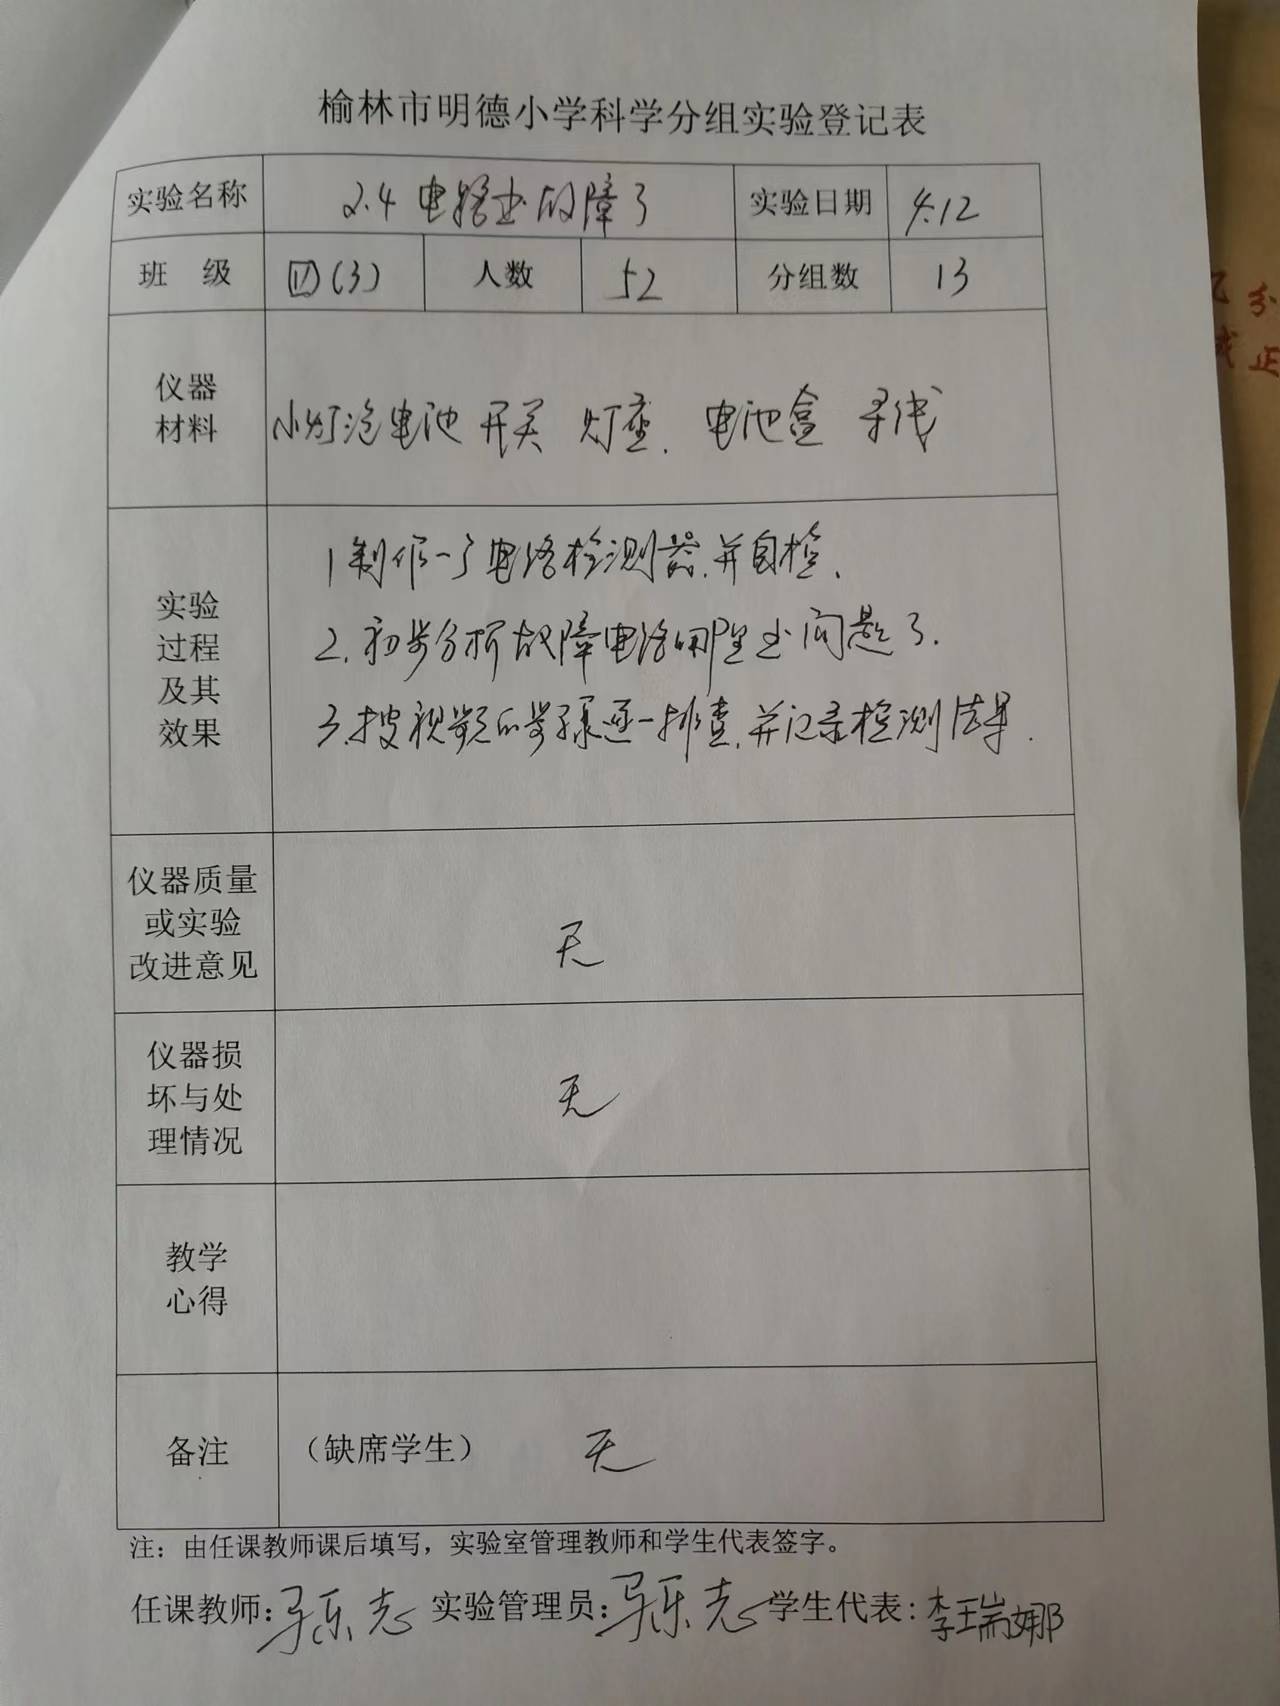 榆林市明德小学科学分组实验登记表
实验名称 2.4 电路出故障了 实验日期 4.12
班 级 四(3) 人数 52 分组数 13
仪器
材料
小灯泡 电池 开关 灯座. 电池盒 导线
实验
过程
及其
效果
1 制作一个电路检测器,并自检.
2. 初步分析故障电路哪里出问题了.
3.按视频的步骤逐一排查,并记录检测结果.
仪器质量
或实验
改进意见
无
仪器损
坏与处
理情况
无
教学
心得
备注 (缺席学生) 无
注：由任课教师课后填写，实验室管理教师和学生代表签字。
任课教师: 实验管理员: 学生代表: 李瑞娜
正